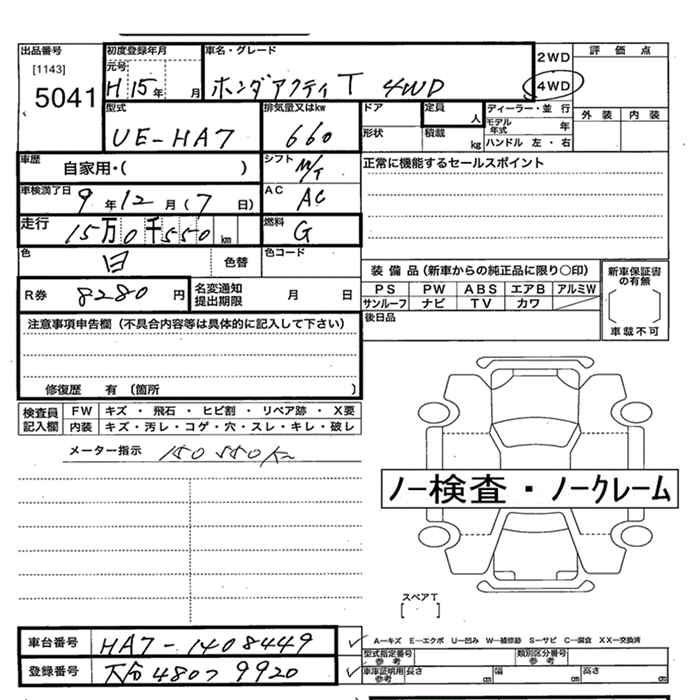 出品番号 初度登録年月 車名・グレード 2WD 評価点
[1143] 元号
5041 H15年 月 ホンダアクティ T 4WD 4WD
型式 排気量又はkw ドア 定員 人 ディーラー・並 行 外装 内装
UE-HA7 660 形状 積載 kg モデル年式 年
ハンドル 左・右
車歴 自家用・( ) シフト M/T 正常に機能するセールスポイント
車検満了日 9年12月(7日) AC AC
走行 15万0千550km 燃料 G
色 白 色替 色コード
装備品(新車からの純正品に限り○印) 新車保証書の有無
R券 8280円 名変通知提出期限 月 日 PS PW ABS エアB アルミW
サンルーフ ナビ TV カワ
注意事項申告欄(不具合内容等は具体的に記入して下さい) 後日品 車載不可
修復歴 有 (箇所 )
検査員記入欄 FW キズ・飛石・ヒビ割・リペア跡・X要
内装 キズ・汚レ・コゲ・穴・スレ・キレ・破レ
メーター指示 150550km
ノー検査・ノークレーム
スペアT
[ ]
車台番号 HA7-1408449 A–キズ E–エクボ U–凹み W–補修跡 S–サビ C–腐食 XX–交換済
型式指定番号 参考 類別区分番号 参考
登録番号 480 9920 車庫証明用 参考 長さ cm 幅 cm 高さ cm